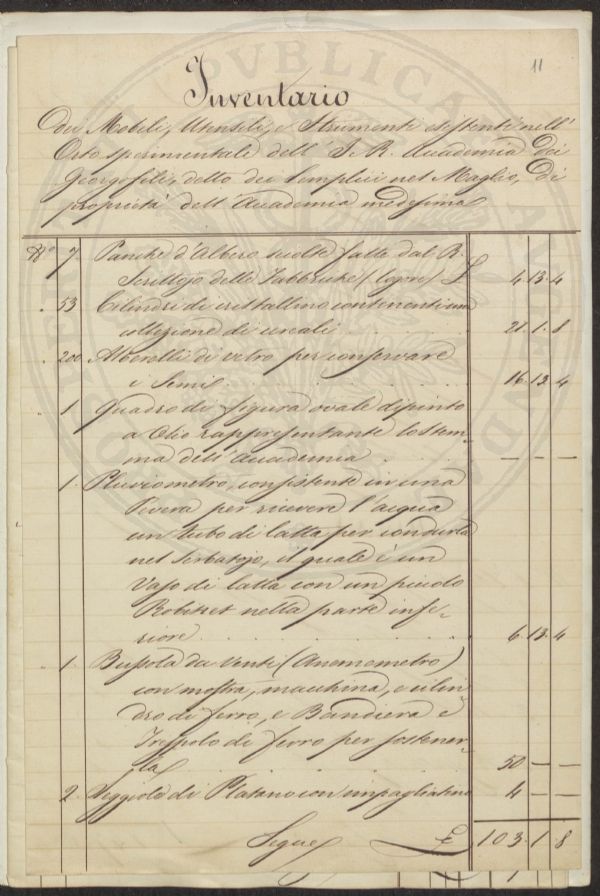 11
Inventario
dei Mobili, Utensili, e Strumenti esistenti nell'
Orto sperimentale dell' I. e R. Accademia dei
Georgofili, detto dei Semplici nel Maglio, di
proprietà dell' Accademia medesima
N.° 7 Panche d'Albero sciolte fatte dal R.
Scrittojo delle Fabbriche (logore) £ 4. 13. 4
. 53 Cilindri di cristallino contenenti una
collezione di cereali . . . . 21. 1. 8
. 200 Alberelli di vetro per conservare
i Semi . . . . . . . 16. 13. 4
. 1 Quadro di figura ovale dipinto
a Olio rappresentante lo stem-
ma dell' Accademia . . . — — —
. 1. Pluviometro, consistente in una
Pevera per ricevere l'acqua
un tubo di latta per condurla
nel serbatojo, il quale è un
Vaso di latta con un piccolo
Robinet nella parte infe-
riore . . . . . . . . 6. 13. 4
. 1. Bussola da Venti (Anemometro)
con mostra, macchina, e cilin-
dro di ferro, e Bandiera e
Treppolo di ferro per sostener-
la . . . . . . . . 50 — —
. 2. Seggiole di Platano con impagliatura 4 — —
Segue £ 103. 1. 8